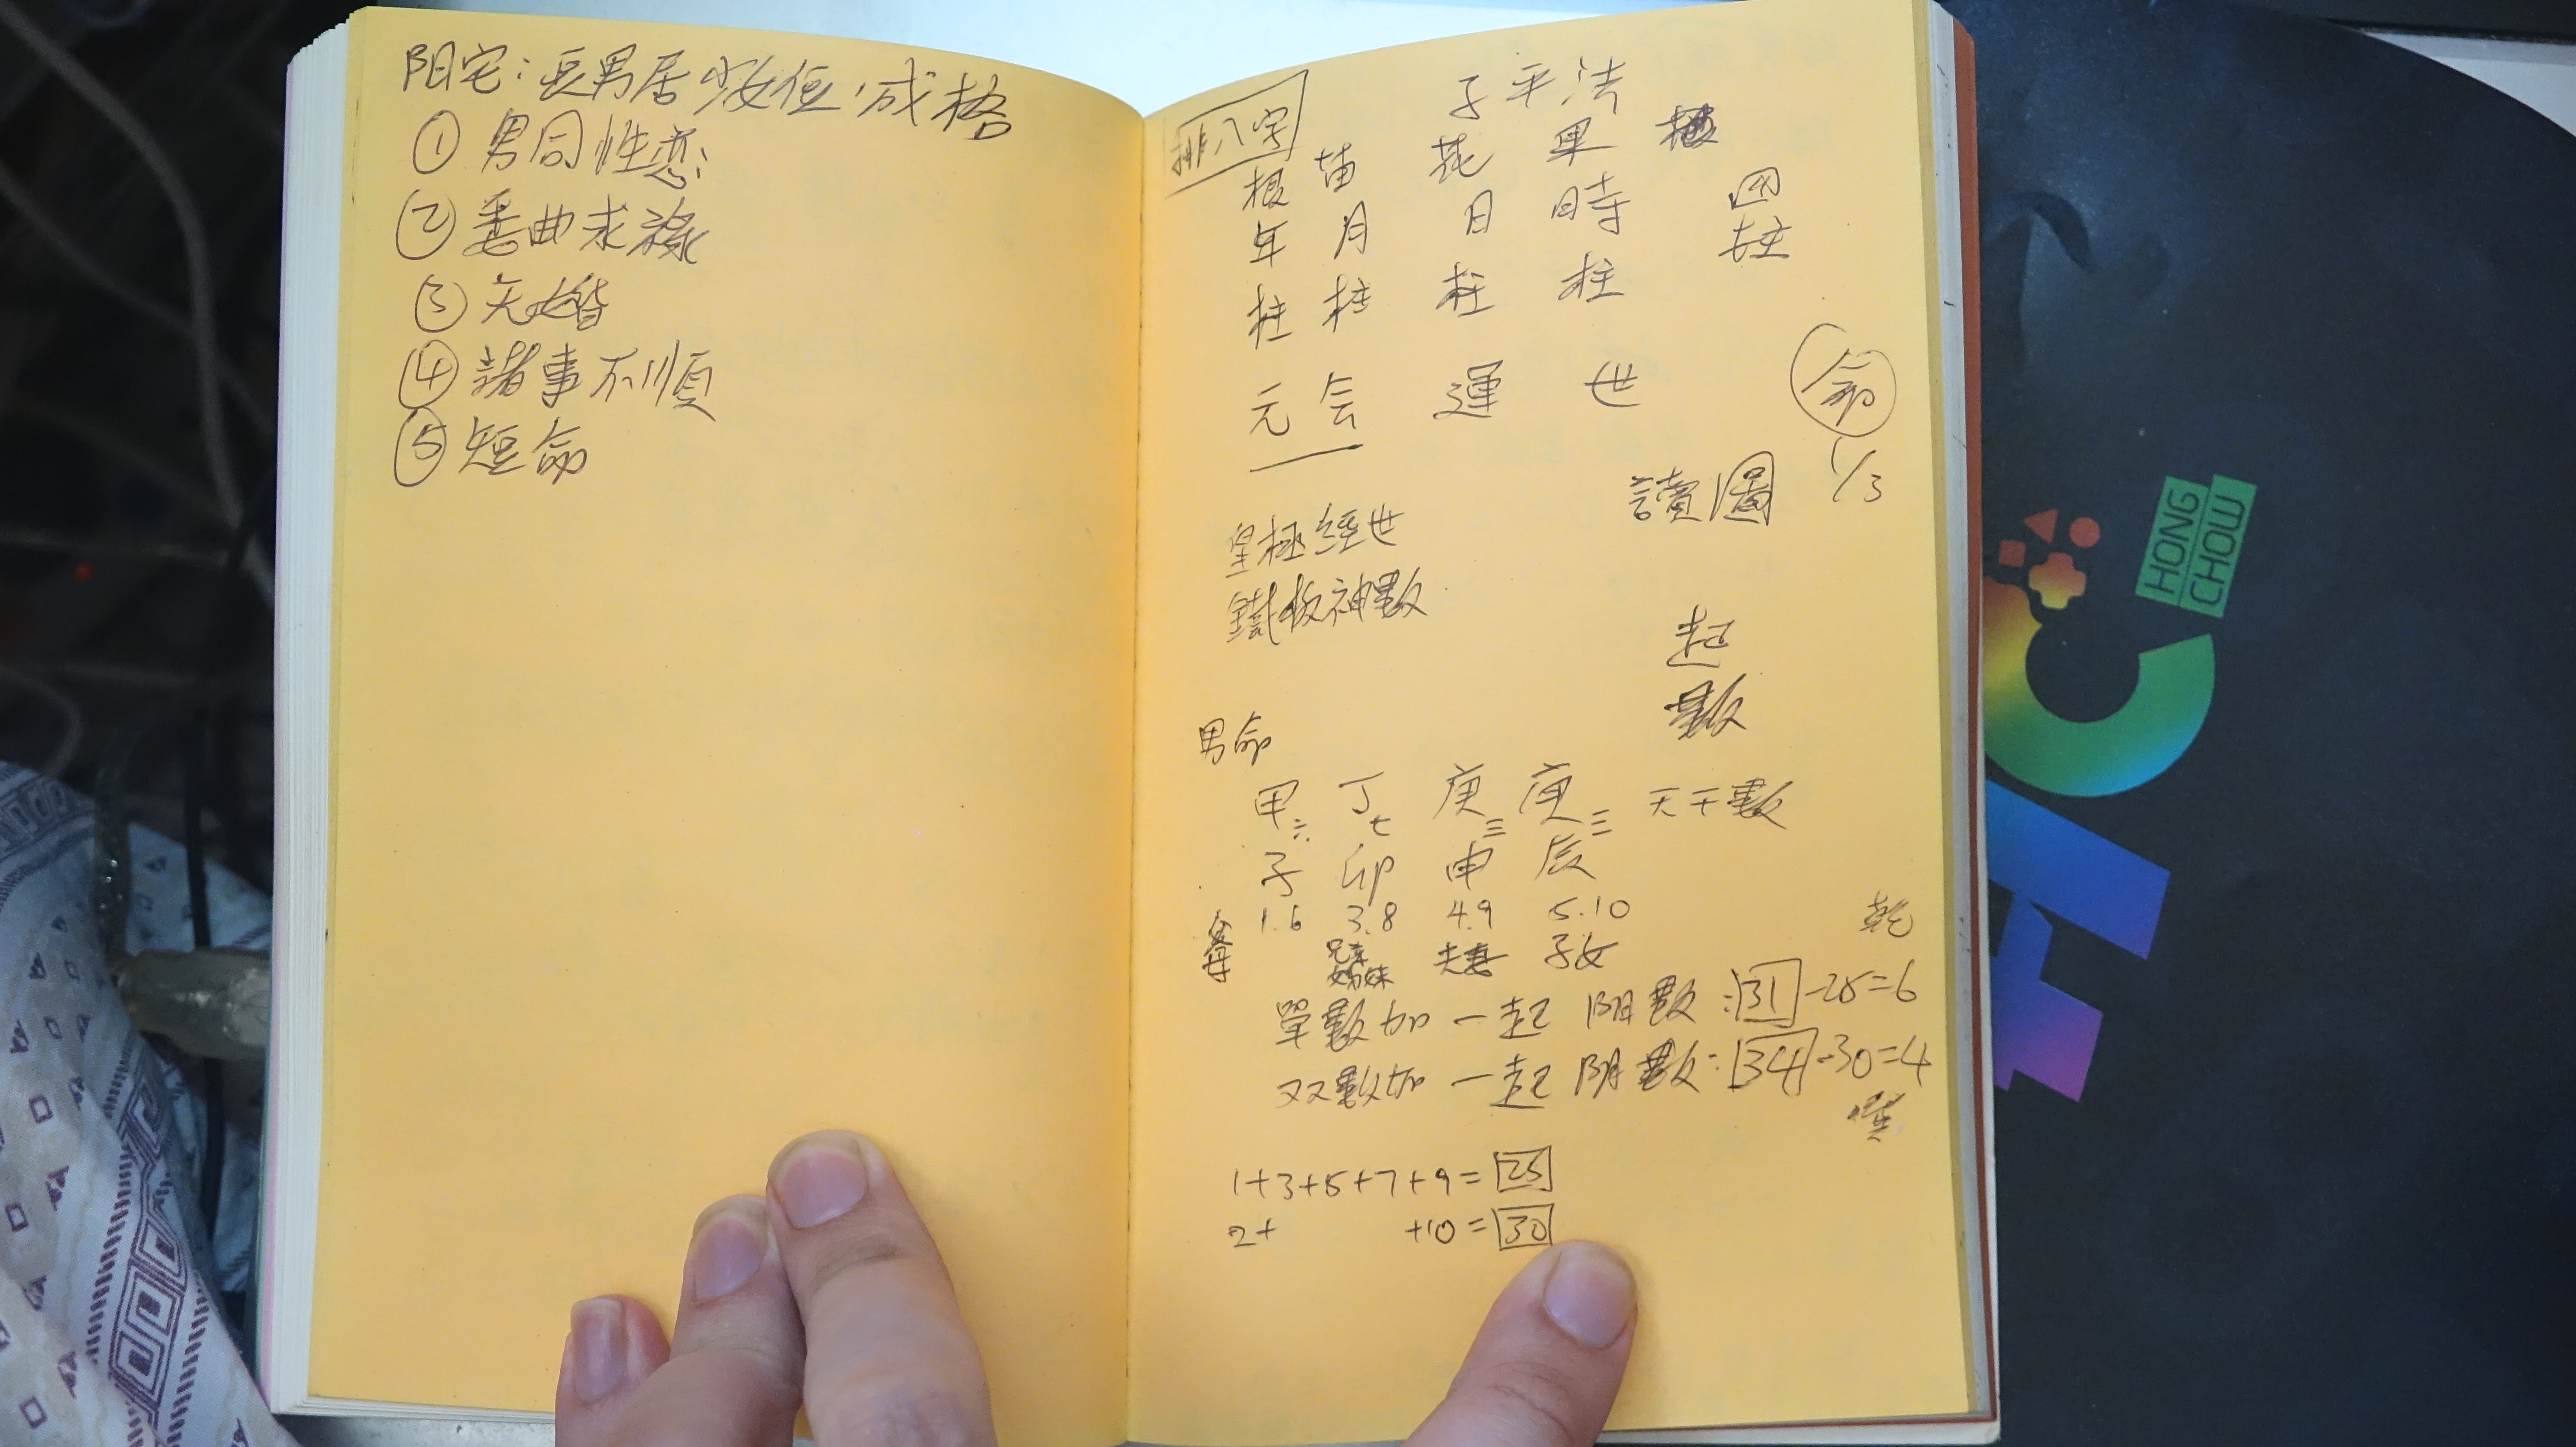 阳宅：長男居少女位，成格
① 男同性恋
② 委曲求祿
③ 无婚
④ 諸事不順
⑤ 短命
排八字
子平法
根 苗 花 果
年 月 日 時 四
柱 柱 柱 柱 柱
元 会 運 世
命
1/3
讀圖
皇極經世
鐵板神數
起
數
男命
甲六 丁七 庚三 庚三 天干數
子 卯 申 辰
1.6 3.8 4.9 5.10
父母 兄弟姊妹 夫妻 子女
乾
單數加一起 阳數：31-25=6
双數加一起 阴數：34-30=4
1+3+5+7+9=25
2+ +10=30
HONG
CHOW